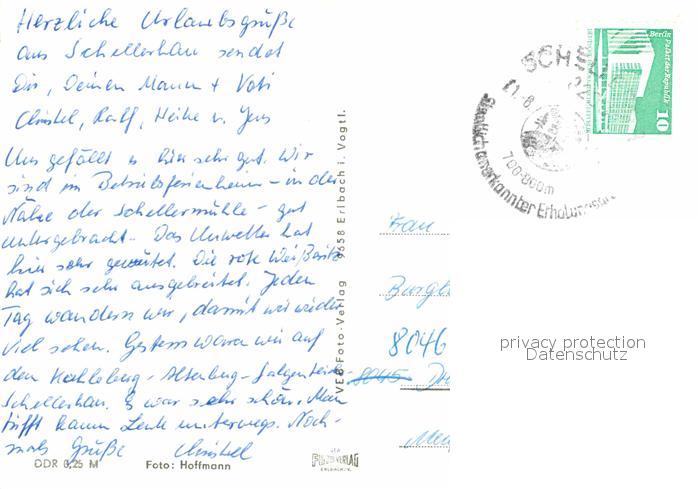 Herzliche Urlaubsgrüße
aus Schellerhau sendet
Dir, Deinem Mann + Vati
Christel, Ralf, Heike u. Jens
Uns gefällt es hier sehr gut. Wir
sind im Betriebsferienheim - in der
Nähe der Schellermühle - gut
untergebracht. Das Unwetter hat
hier sehr gewütet. Die rote Weißeritz
hat sich sehr ausgebreitet. Jeden
Tag wandern wir, damit wir wieder
viel sehen. Gestern waren wir auf
den Kahleberg - Altenberg -
Schellerhau. Es war sehr schön. Man
trifft kaum Leute unterwegs. Noch-
mals Grüße Christel
DDR 0,25 M Foto: Hoffmann
VEB Foto-Verlag 9658 Erlbach i. Vogtl.
VEB
FOTO-VERLAG
ERLBACH/V.
Frau
Burgb
8046
8045 Dr
SCH
700-800m
Staatlich anerkannter Erholungsort
Berlin Palast der Republik
10
privacy protection
Datenschutz